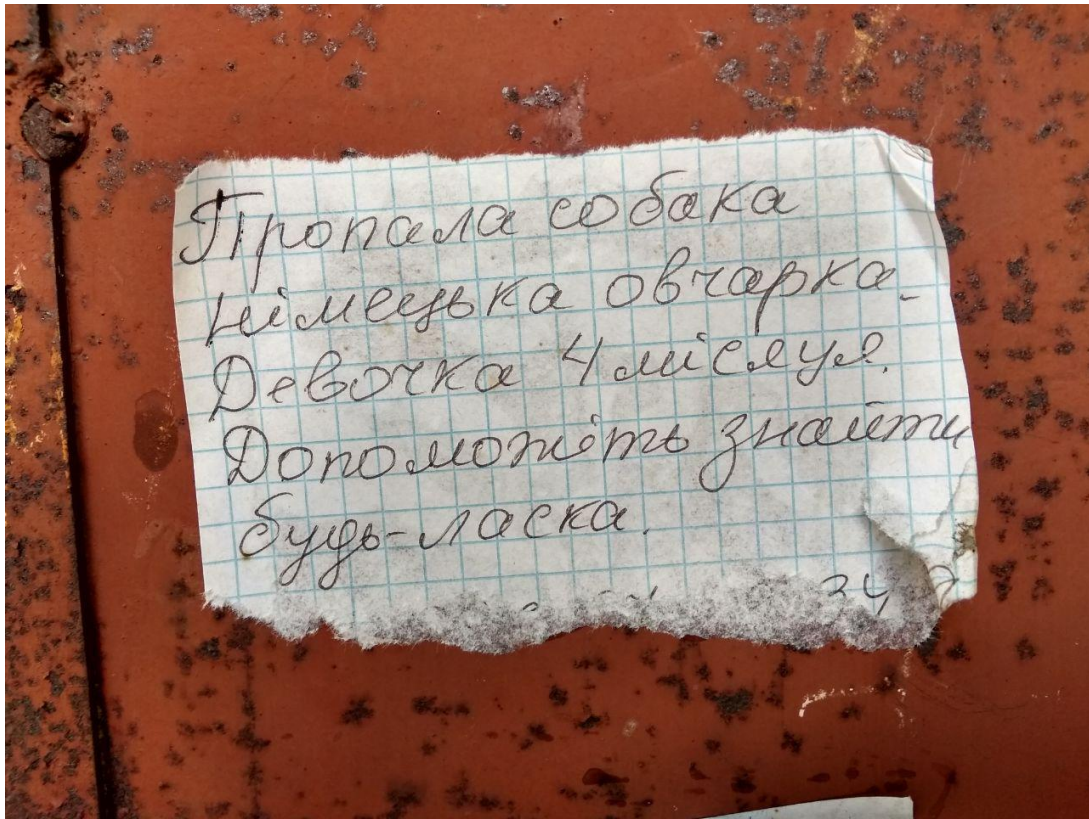 Пропала собака
німецька овчарка.
Девочка 4 місяця.
Допоможіть знайти
будь-ласка.